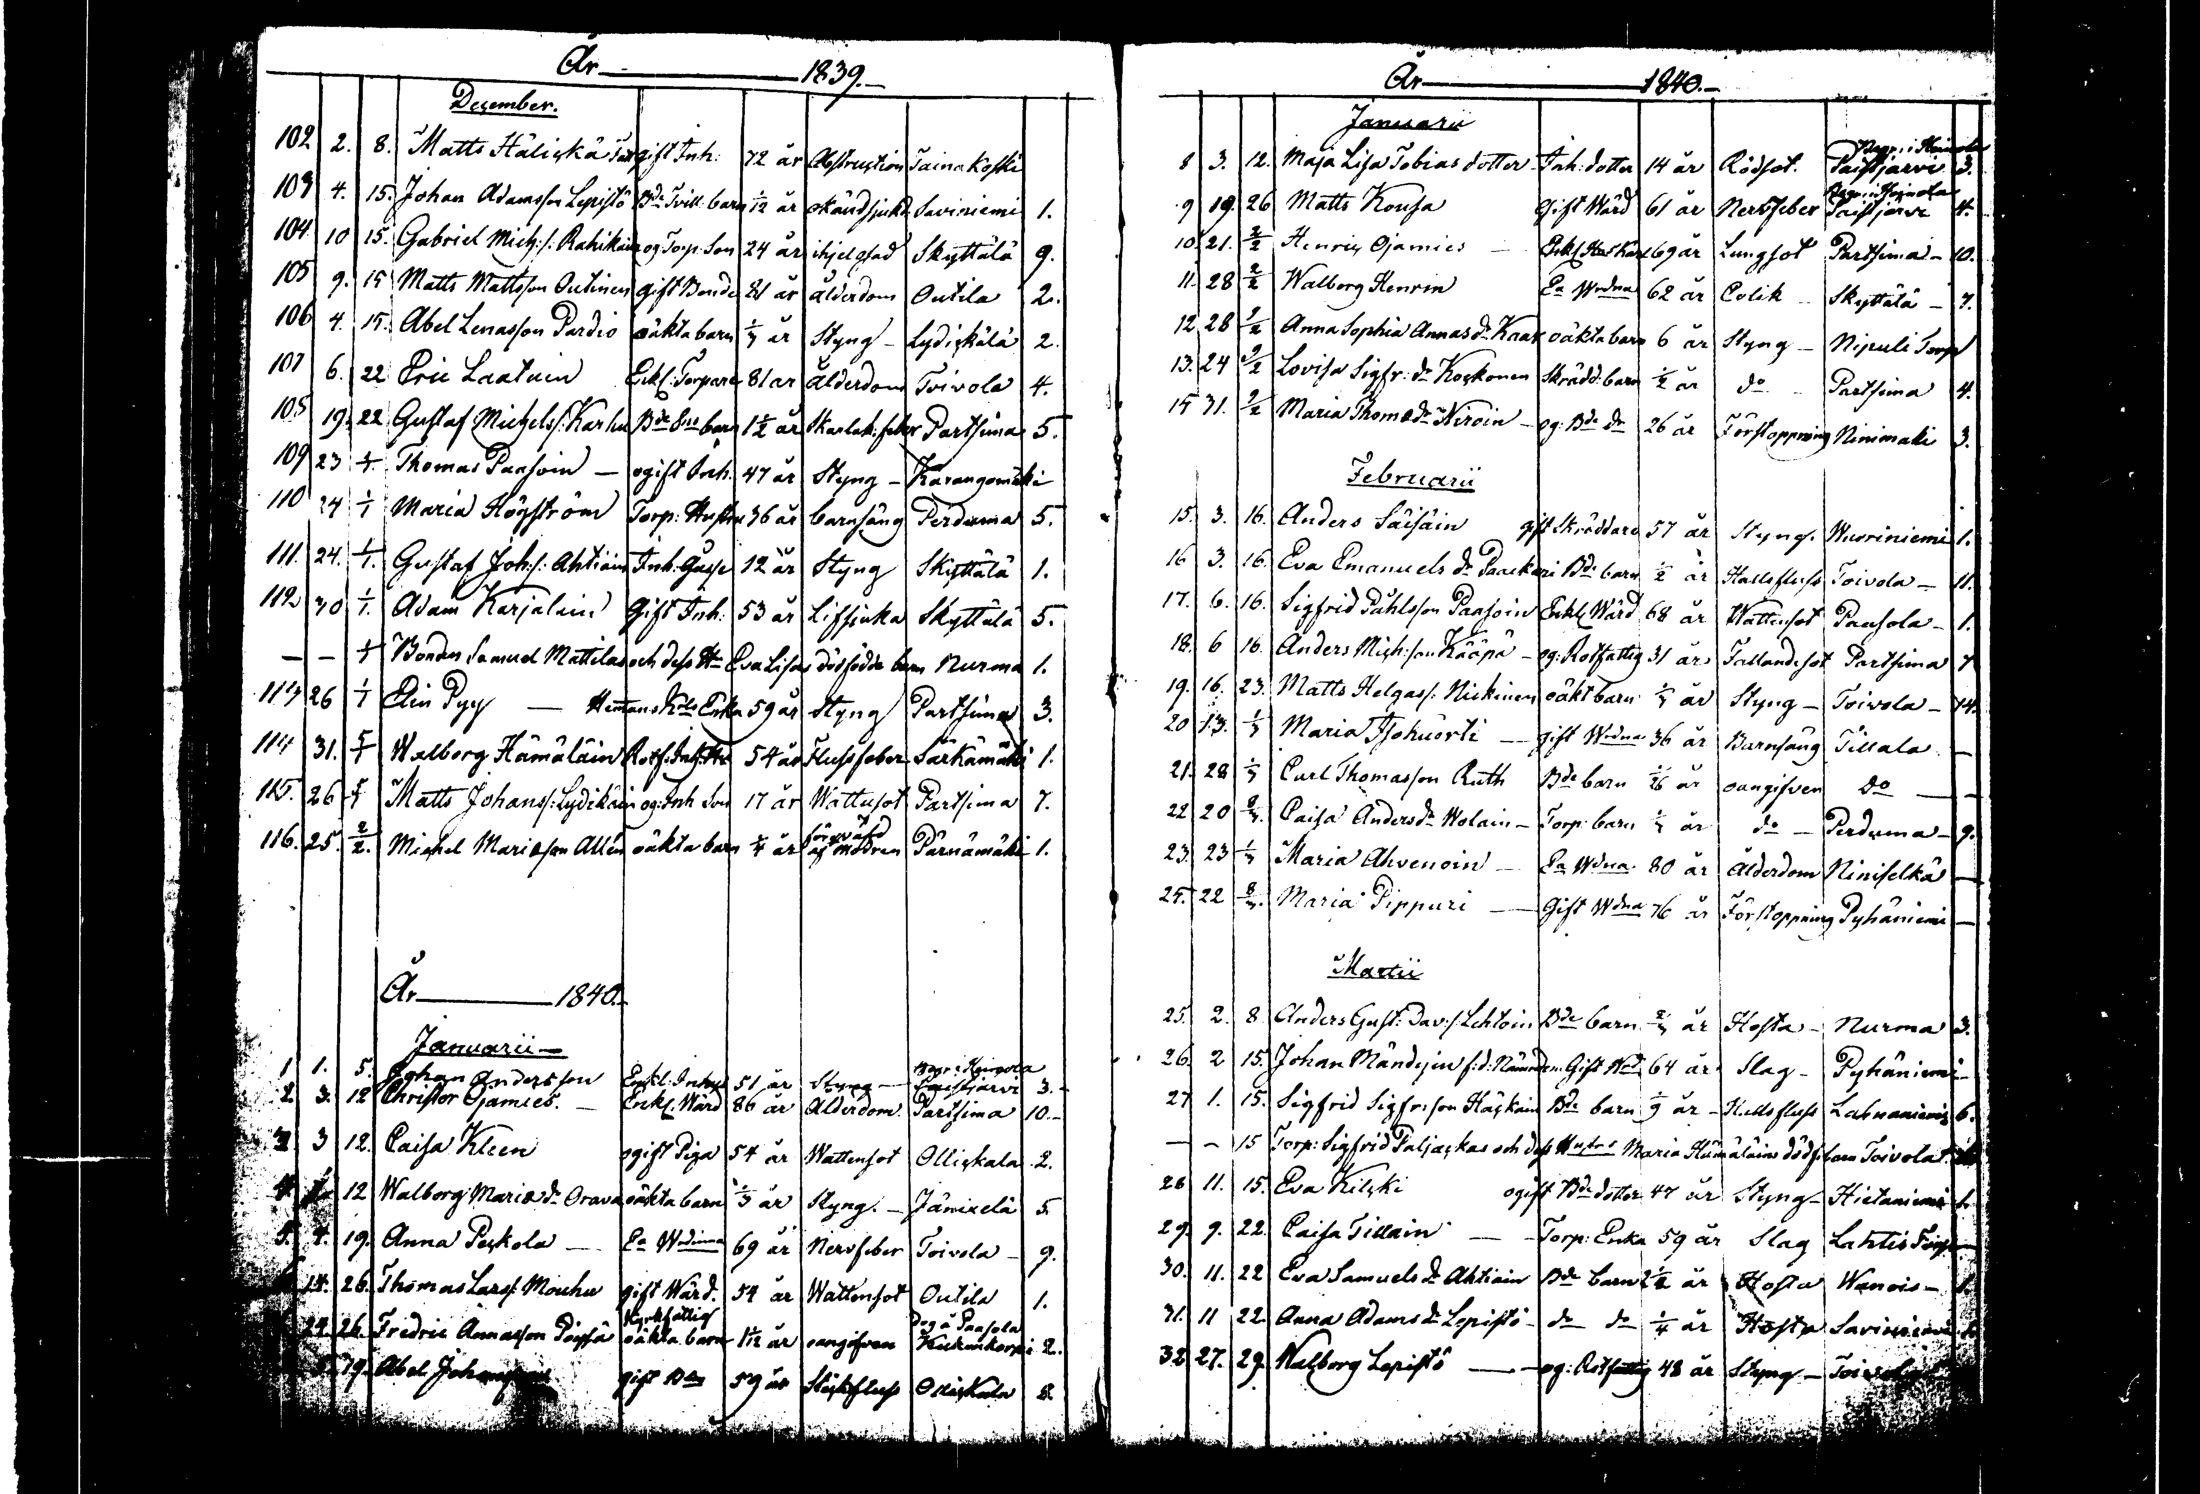 År 1839.
December.
102 2. 8. Matts Hälickä gift Inh: 72 år Obstruction Tainakoski
103 4. 15. Johan Adamsson Lepistö Bde Tvill: barn 1/12 år okänd sjukd Saviniemi 1.
104 10 15. Gabriel Mich:s: Rahikain og Torp: Son 24 år ihjelslad Skyttälä 9.
105 9. 15 Matts Mattsson Outinen gift Bonde 81 år Ålderdom Outila 2.
106 4. 15. Abel Lenasson Pardio oäkta barn år Styng - Lydickälä 2.
107 6. 22 Eric Laatuin Enkl: Torpare 81 år Ålderdom Toivola 4.
108 19. 22 Gustaf Michels: Karhu Bde Sns barn 1 1/2 år Skarlak: feber Partsima 5.
109 23 1/1. Thomas Paasoin — ogift Inh. 47 år Styng - Karangomäki
110 24 1/1 Maria Högström Torp: Hustru 36 år barnsäng Perduma 5.
111. 24. 1/1. Gustaf Joh:s: Ahtiain Inh: Gosse 12 år Styng Skyttälä 1.
112 30 1/1. Adam Karjalain Gift Inh: 53 år Lifsjuka Skyttälä 5.
— — 1/1 Bonden Samuel Mattilas och dess H. Eva Lisas dödfödda barn Nurma 1.
113 26 1/1 Elin Pyy — Hemmans Enka 59 år Styng Partsima 3.
114 31. 5/1 Walborg Hämäläin Rotf: Inh: Hu 54 år Flussfeber Särkämäki 1.
115. 26 5/1 Matts Johanss: Lydikäin og: Inh Son 17 år Wattusot Partsima 7.
116. 25. 2/2. Michel Mariæson Allén oäkta barn 1/4 år af modren Pärnämäki 1.
År 1840.
Januarii —
1 1. 5. Johan Andersson Enkl: Inhys 51 år Styng — Begr: i Heinola Paistjärvi 3.
2 3. 12 Christer Ojamies. — Enkl. Wärd 86 år Ålderdom Partsima 10.-
3 3 12. Caisa Kleen ogift Piga 54 år Wattensot Ollickala 2.
12 Walborg Mariæ dr Orava oäkta barn år Styng. — Jänixelä 5.
5. 4. 19. Anna Peckola — Ea Wdinna 69 år Nervfeber Toivola — 9.
14. 26. Thomas Lars: Mouhu gift Wärd. 54 år Wattensot Outila 1.
24. 26. Fredric Annasson Kyrkfattig oäkta barn 1 1/12 år oangifven Dog å Paasola 2.
19. Abel gift 59 år Ollickala
År 1840.-
Januarii
8 3. 12. Maja Lisa Tobias dotter Inh: dotter 14 år Rödsot. Begr: i Heinola Paistjärvi 3.
9 19. 26 Matts Kousa Gift Wärd 61 år Nervfeber Begr: i Heinola Paistjärvi 4.
10. 21. 2/2 Henric Ojamies — 69 år Lungsot Partsima - 10.
11. 28 2/2 Walborg Henrin Ea Wrdna 62 år Colik - Skyttälä - 7.
12 28 9/2 Anna Sophia Annas dr Kaar oäkta barn 6 år Styng — Nipuli Torp
13. 24 9/2 Lovisa Sigfr: dr Kockonen Skrädd: barn 1/2 år do - Partsima 4.
15 31. 9/2 Maria Thomæ dr Niroin — og: Bde dr 26 år Förstoppning Ninimäki 3.
Februarii
15. 3. 16. Anders Säisäin gift Skräddare 57 år Styng. Wuoriniemi 1.
16 3. 16. Eva Emanuels dr Paackari Bde barn 1/2 år Halsfluss Toivola — 11.
17. 6. 16. Sigfrid Påhlsson Paasoin Enkl. Wärd 68 år Wattensot Paasola — 1.
18. 6 16. Anders Mich:son Kääpä — og: Rotfattig 31 år Fallandesot Partsima 7
19. 16. 23. Matts Helgass: Nickinen oäkt barn år Styng — Toivola — 14.
20 13. 1/3 Maria — gift Wrdna 36 år Barnsäng Tillala —
21. 28 1/3 Carl Thomasson Ruth Bde barn år oangifven do —
22 20 Caisa Anders dr Wolain — Torp: barn år do — Perduma — 9.
23. 23 1/3 Maria Ahvenoin — Ea Wdna 80 år Ålderdom Niniselkä —
25. 22 8/3. Maria Pippuri — Gift Wdna 76 år Förstoppning Pyhäniemi —
Martii
25. 2. 8 Anders Gust: Dav:s: Lehtoin Bde barn år Hosta — Nurma 3.
26. 2 15. Johan Mändyin f:d: Nämndem: Gift Wd 64 år Slag — Pyhäniemi —
27 1. 15. Sigfrid Sigfr:son Häckäin Bde barn år — Halsfluss Lahnaniemi 6.
— — 15 Torp: Sigfrid Paljackas och dess Hustrus Maria Hämäläins dödf: barn Toivola
28 11. 15. Eva Kilcki ogift Bde dotter 47 år Styng — Hietaniemi
29. 9. 22. Caisa Tillain — Torp: Enka 59 år Slag Lahtis Torp
30. 11. 22 Eva Samuels dr Ahtiain Bde barn år Hosta Wanois —
31. 11 22 Anna Adams dr Lepistö — do do 1/4 år Hosta Saviniemi
32 27. 29. Walborg Lepistö — og: Rotfattig 48 år Styng —